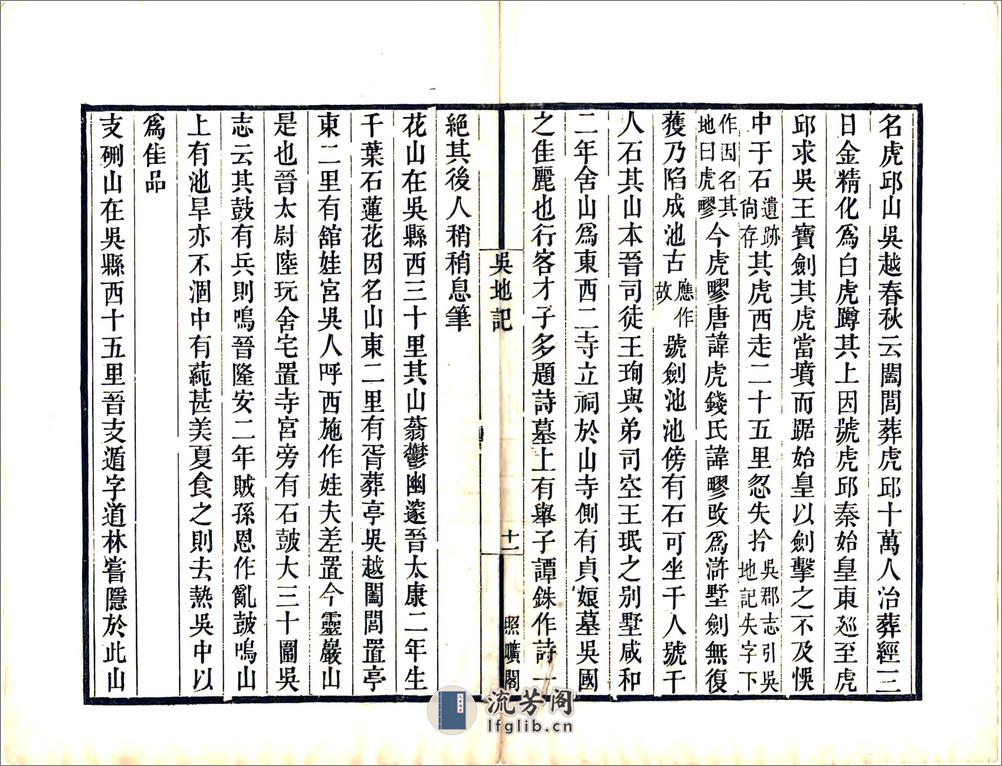 名虎邱山吳越春秋云闔閭葬虎邱十萬人治葬經三
日金精化爲白虎蹲其上因號虎邱秦始皇東廵至虎
邱求吳王寶劍其虎當墳而踞始皇以劍擊之不及悞
中于石遺跡尙存其虎西走二十五里忽失拎吳郡志引吳地記失字下
作因名其地曰虎疁今虎疁唐諱虎錢氏諱疁攺爲滸墅劍無復
獲乃陷成池古應作故號劍池池傍有石可坐千人號千
人石其山本晉司徒王珣與弟司空王珉之别墅咸和
二年舍山爲東西二寺立祠於山寺側有貞娘墓吳國
之佳麗也行客才子多題詩墓上有舉子譚銖作詩一
吳地記
十一
照曠閣
絕其後人稍稍息筆
花山在吳縣西三十里其山蓊鬱幽邃晉太康二年生
千葉石蓮花因名山東二里有胥葬亭吳越闔閭置亭
東二里有舘娃宮吳人呼西施作娃夫差置今靈巖山
是也晉太尉陸玩舍宅置寺宮旁有石皷大三十圍吳
志云其鼓有兵則鳴晉隆安二年賊孫恩作亂皷鳴山
上有池旱亦不涸中有蒓甚美夏食之則去熱吳中以
爲佳品
支硎山在吳縣西十五里晉支遁字道林嘗隱於此山
流芳阁
lfglib.cn